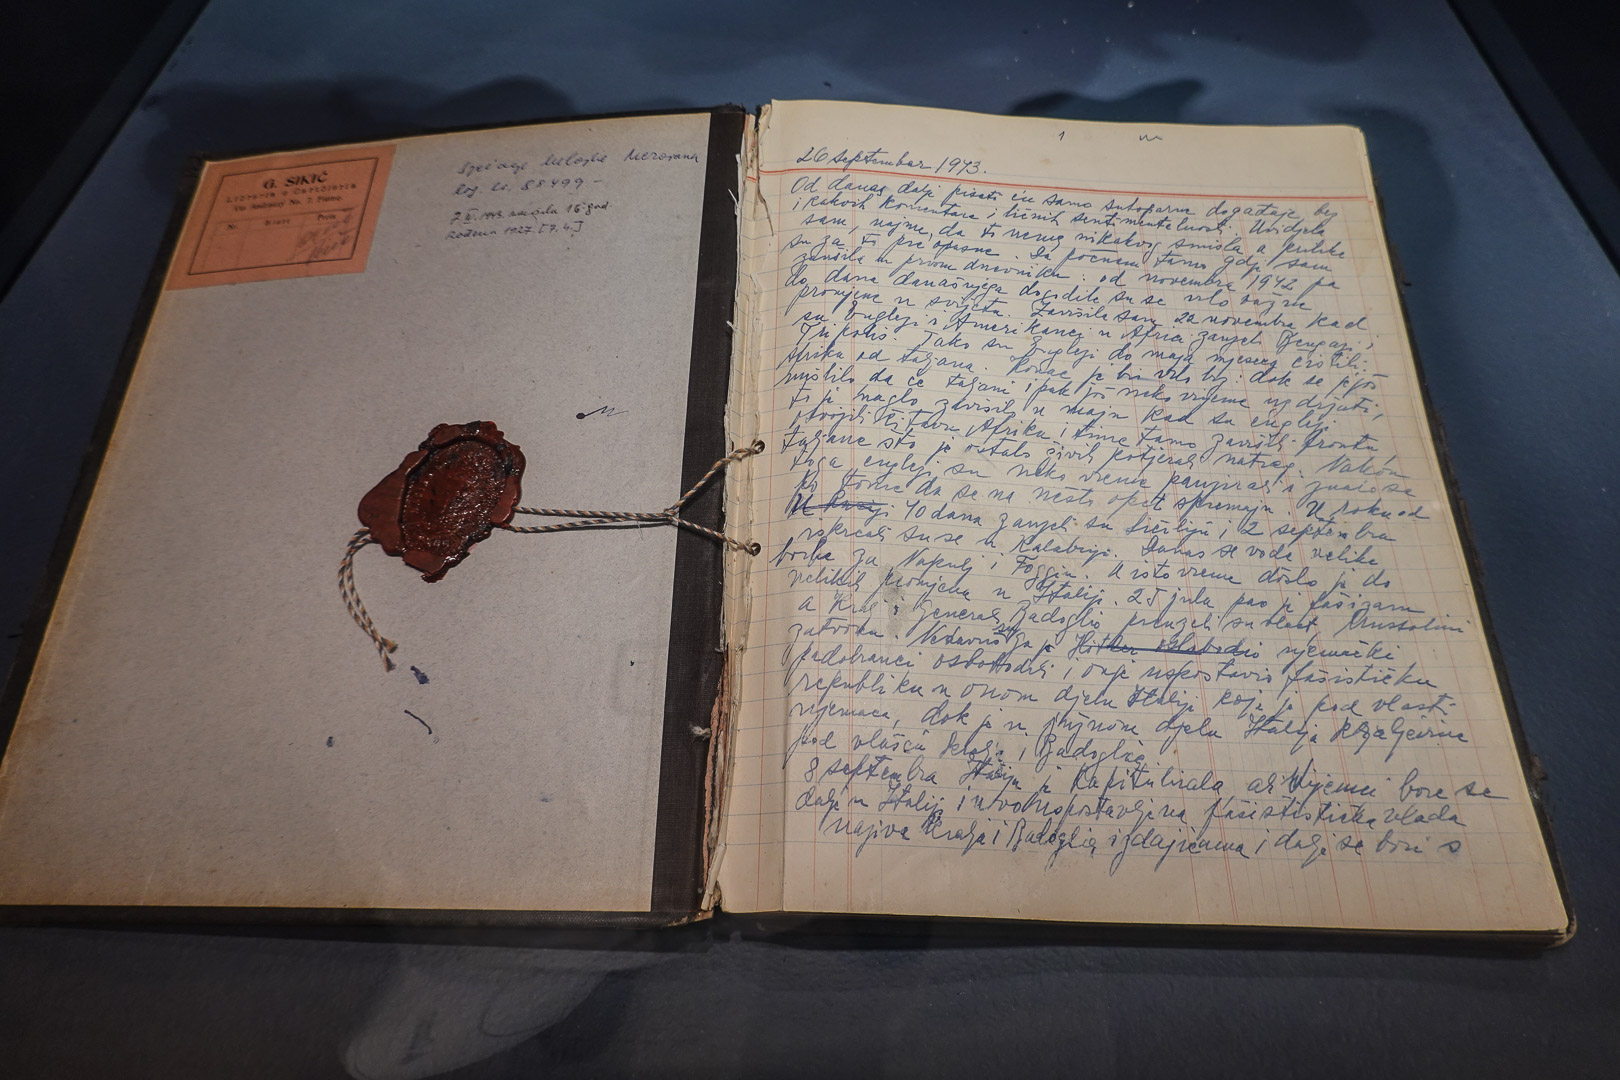 G. SIKIĆ
Libreria e Cartoleria
Via Andrassy No. 2, Fiume
Nr. Stett Preis
log. br. 88499 -
2. 1943. 16 god.
Rođena 1927 [7.4.]
1
26 septembar 1943.
Od danas dalje pisati ću samo suhoparne događaje, bez
ikakvih komentara i ličnih sentimentalnosti. Uvidjela
sam, najme, da to nema nikakvog smisla a prilike
su za to pre opasne. Da počnem tamo gdje sam
završila u prvom dnevniku: od novembra 1942 pa
do dana današnjega dogodile su se vrlo važne
promjene u svijetu. Završila sam 22 novembra kad
su Englezi i Amerikanci u Africi zauzeli Bengazi i
Tripolis. Tako su Englezi do maja mjeseca čistili
Afriku od taljana. Konac je bio vrlo brz: dok se još
mislilo da će taljani ipak još neko vrijeme izdržati,
to je naglo završilo u maju kad su englezi
osvojili čitavu Afriku i time tamo završili frontu
taljane što je ostalo živih potjerali natrag. Nakon
toga englezi su neko vreme pauzirali i znalo se
po tome da se na nešto opet spremaju. U roku od
40 dana zauzeli su Siciliju i 2 septembra
iskrcali su se u Kalabriji. Danas se vode velike
borbe za Napulj i Foggiu. U isto vreme došlo je do
velikih promjena u Italiji. 25 jula pao je fašizam
a Kralj i general Badoglio preuzeli su vlast, Mussolini
zatvoren. su ga Hitler oslobodio njemački
padobranci oslobodili i on je uspostavio fašističku
republiku u onom djelu Italije koji je pod vlasti
njemaca, dok je u južnom djelu Italije kraljevina
pod vlašću kralja i Badoglia.
8 septembra Italija je kapitulirala ali Nijemci bore se
dalje u Italiji i novouspostavljena fašististička vlada
naziva Kralja i Badoglia izdajicama i dalje se bori s